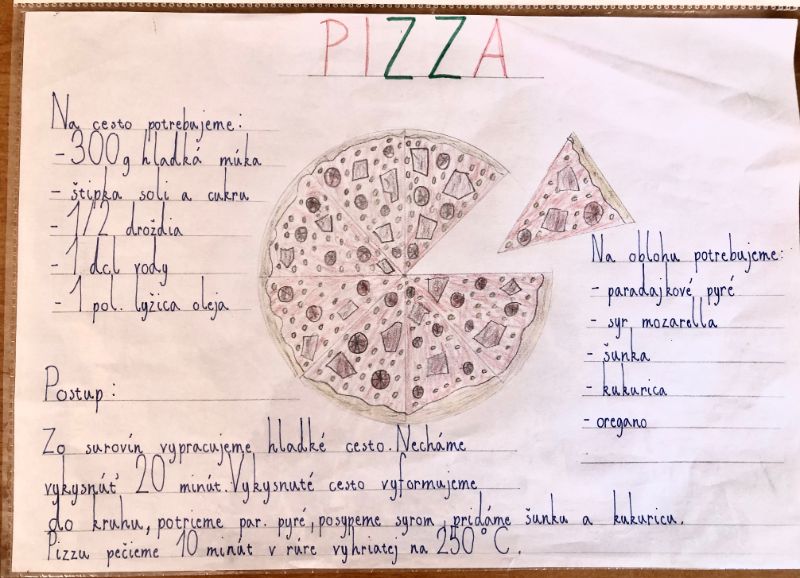 PIZZA
Na cesto potrebujeme:
- 300g hladká múka
- štipka soli a cukru
- 1/2 droždia
- 1 dcl vody
- 1 pol. lyžica oleja
Na oblohu potrebujeme:
- paradajkové pyré
- syr mozarella
- šunka
- kukurica
- oregano
Postup:
Zo surovín vypracujeme hladké cesto. Necháme
vykysnúť 20 minút. Vykysnuté cesto vyformujeme
do kruhu, potrieme par. pyré, posypeme syrom, pridáme šunku a kukuricu.
Pizzu pečieme 10 minút v rúre vyhriatej na 250°C.